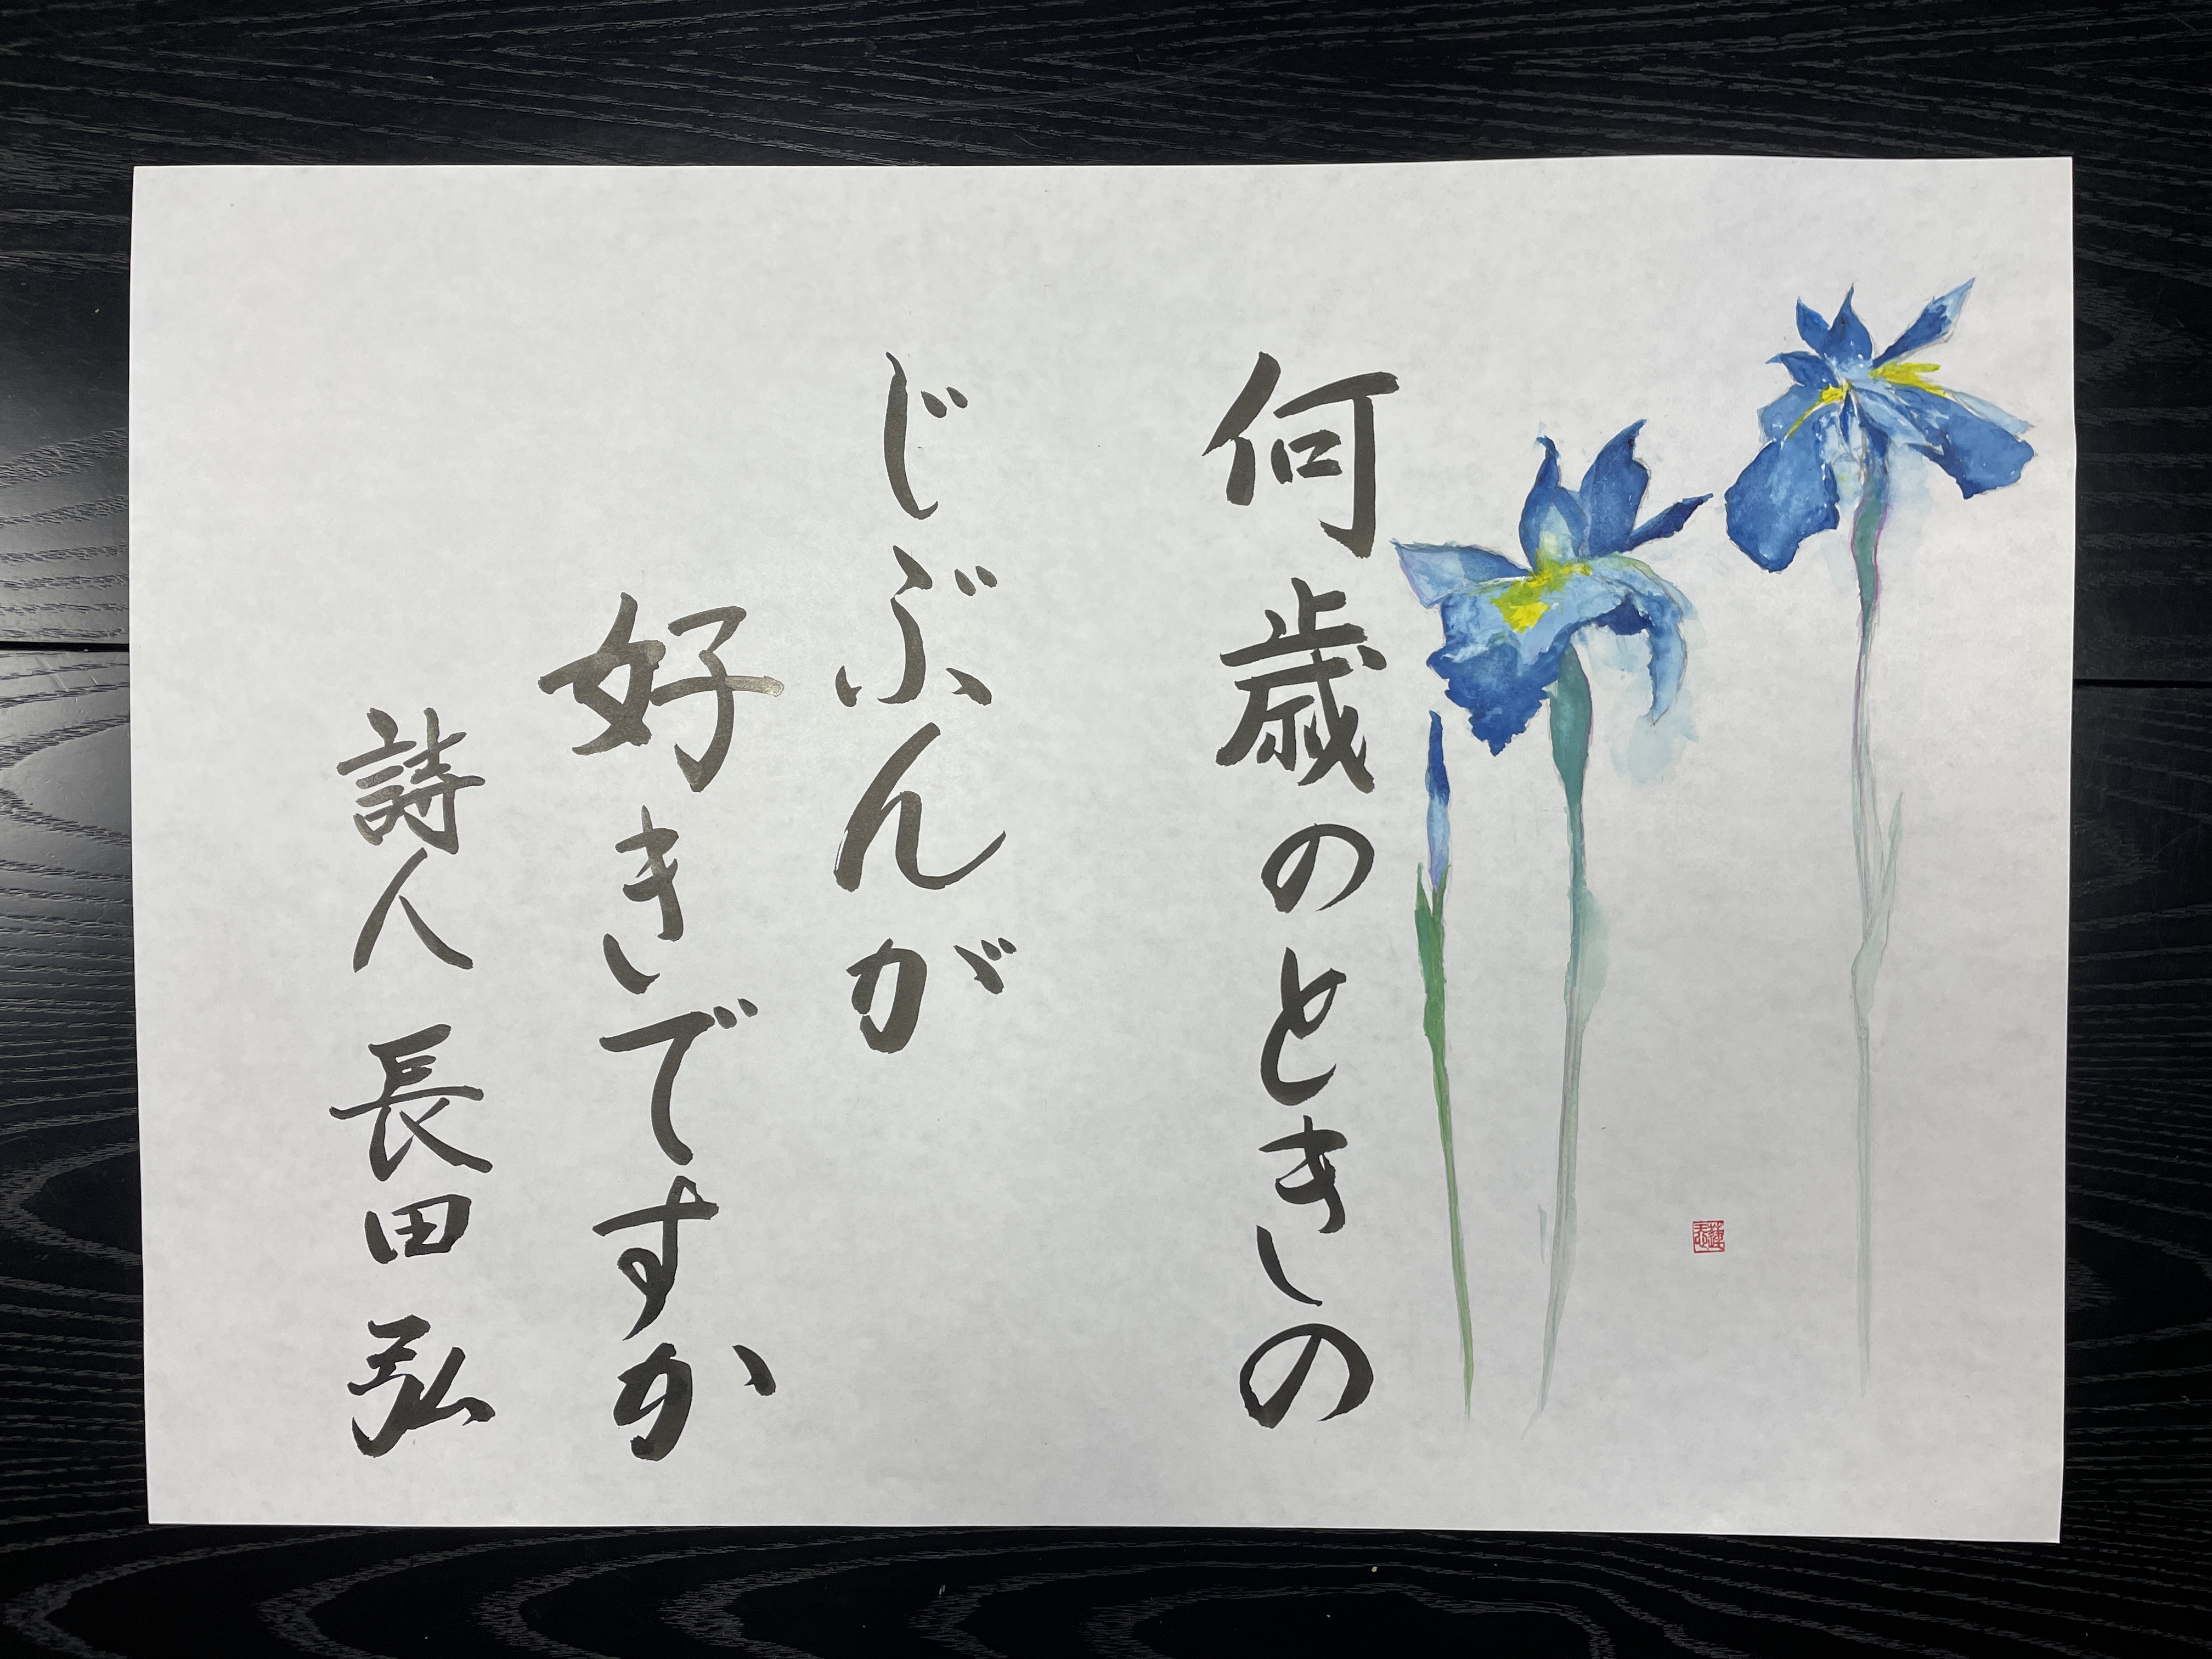 何歳のときの
じぶんが
好きですか
詩人 長田 弘